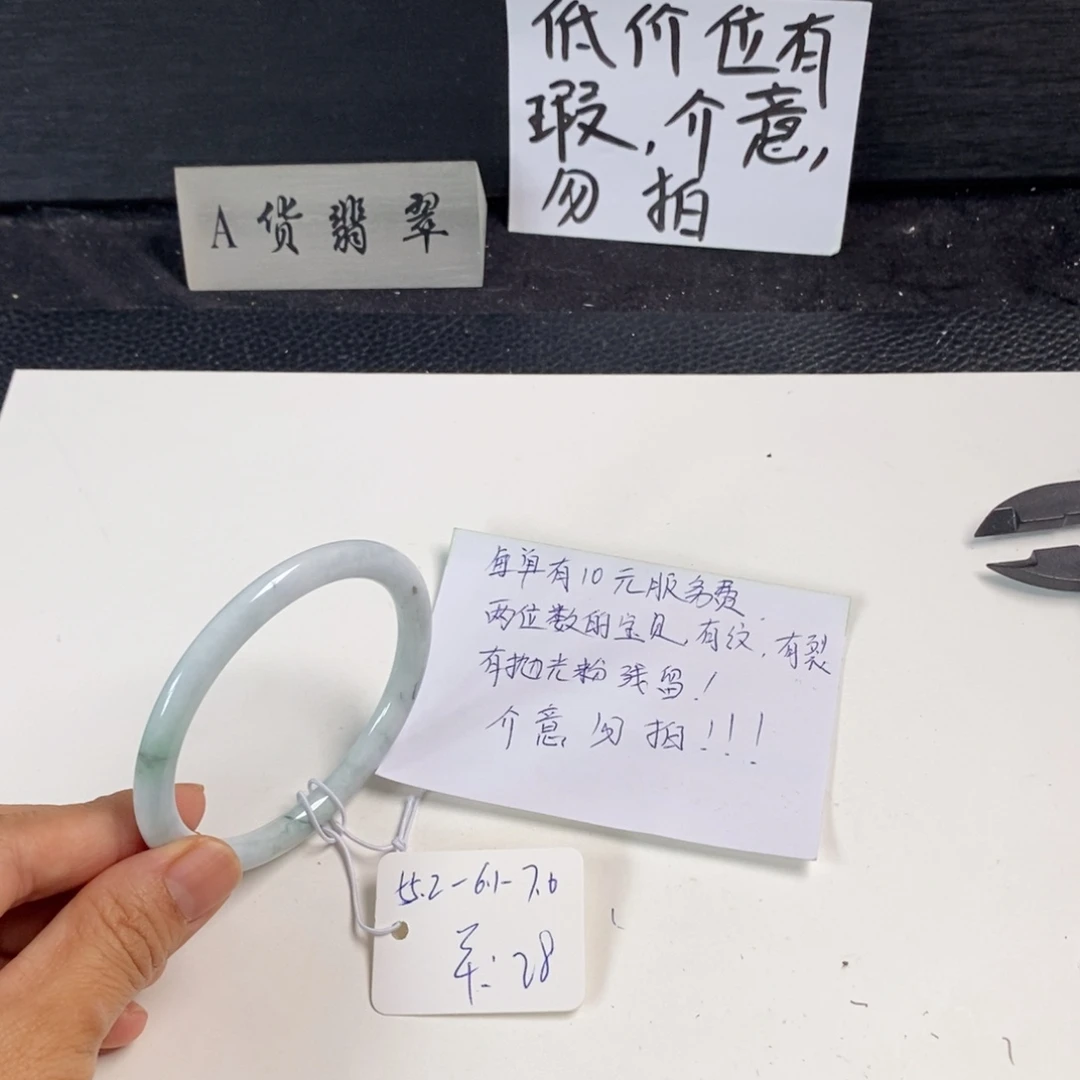 低价位有
瑕,介意,
勿拍
A货翡翠
每单有10元服务费.
两位数的宝贝,有纹,有裂
有抛光粉残留!
介意勿拍!!!
55.2-6.1-7.6
28